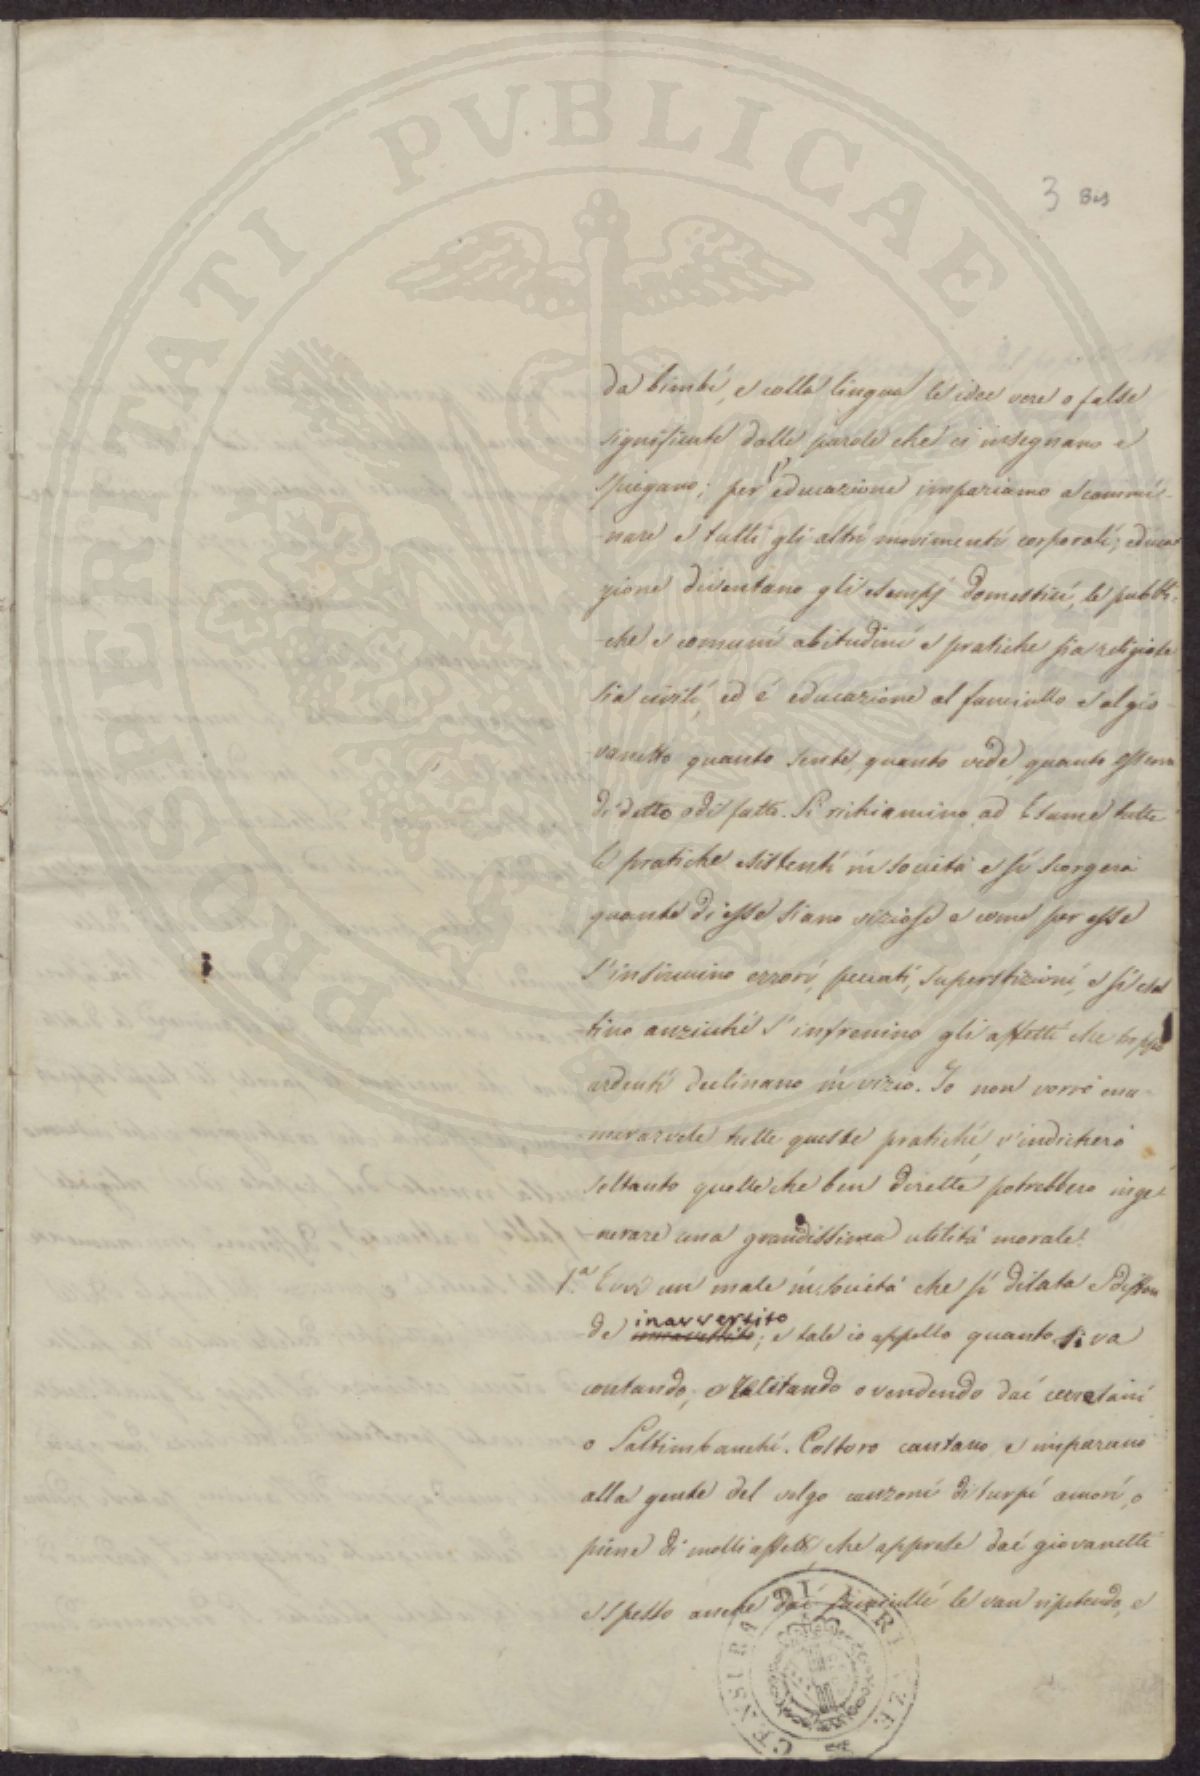 PROSPERITATI PVBLICAE
3 Bis
da bimbi, e colla lingua le idee vere o false
significate dalle parole che ci insegnano e
spiegano; per l'educazione impariamo a cammi-
-nare e tutti gli altri movimenti corporali; educa-
zione diventano gli esempj domestici, le pubbli-
-che e comuni abitudini e pratiche sia religiose
sia civili, ed è educazione al fanciullo e al gio-
vanetto quanto sente, quanto vede, quanto osserva
di detto o di fatto. Si richiamino ad esame tutte
le pratiche esistenti in società e si scorgerà
quante di esse siano viziose e come per esse
s'insinuino errori, peccati, superstizioni, e si esal
tino anzichè s'infrenino gli affetti che troppo
ardenti declinano in vizio. Io non verrò enu-
-merarvele tutte queste pratiche, v'indicherò
soltanto quelle che ben dirette potrebbero inge-
-nerare una grandissima utilità morale.
1.a Evvi un male in società che si dilata e diffon
de inavvertito; e tale io appello quanto si va
cantando, o recitando o vendendo dai cerretani
o Saltimbanchi. Costoro cantano e imparano
alla gente del volgo canzoni di turpi amori, o
piene di molli affetti, che apprese dai giovanetti
e spesso anche dai fanciulli le van ripetendo, e